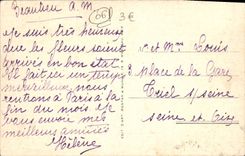 Beaulieu A.M
06
3€
Je suis très heureuse
que les fleurs soient
arrivés en bon état
Il fait un temps
merveilleux, nous
rentrons à Paris à la
fin du mois. Je
vous envoie mes
meilleures amitiés
Hélène
et Mme Louis
3 place de la Gare
Triel s/seine
seine et Oise